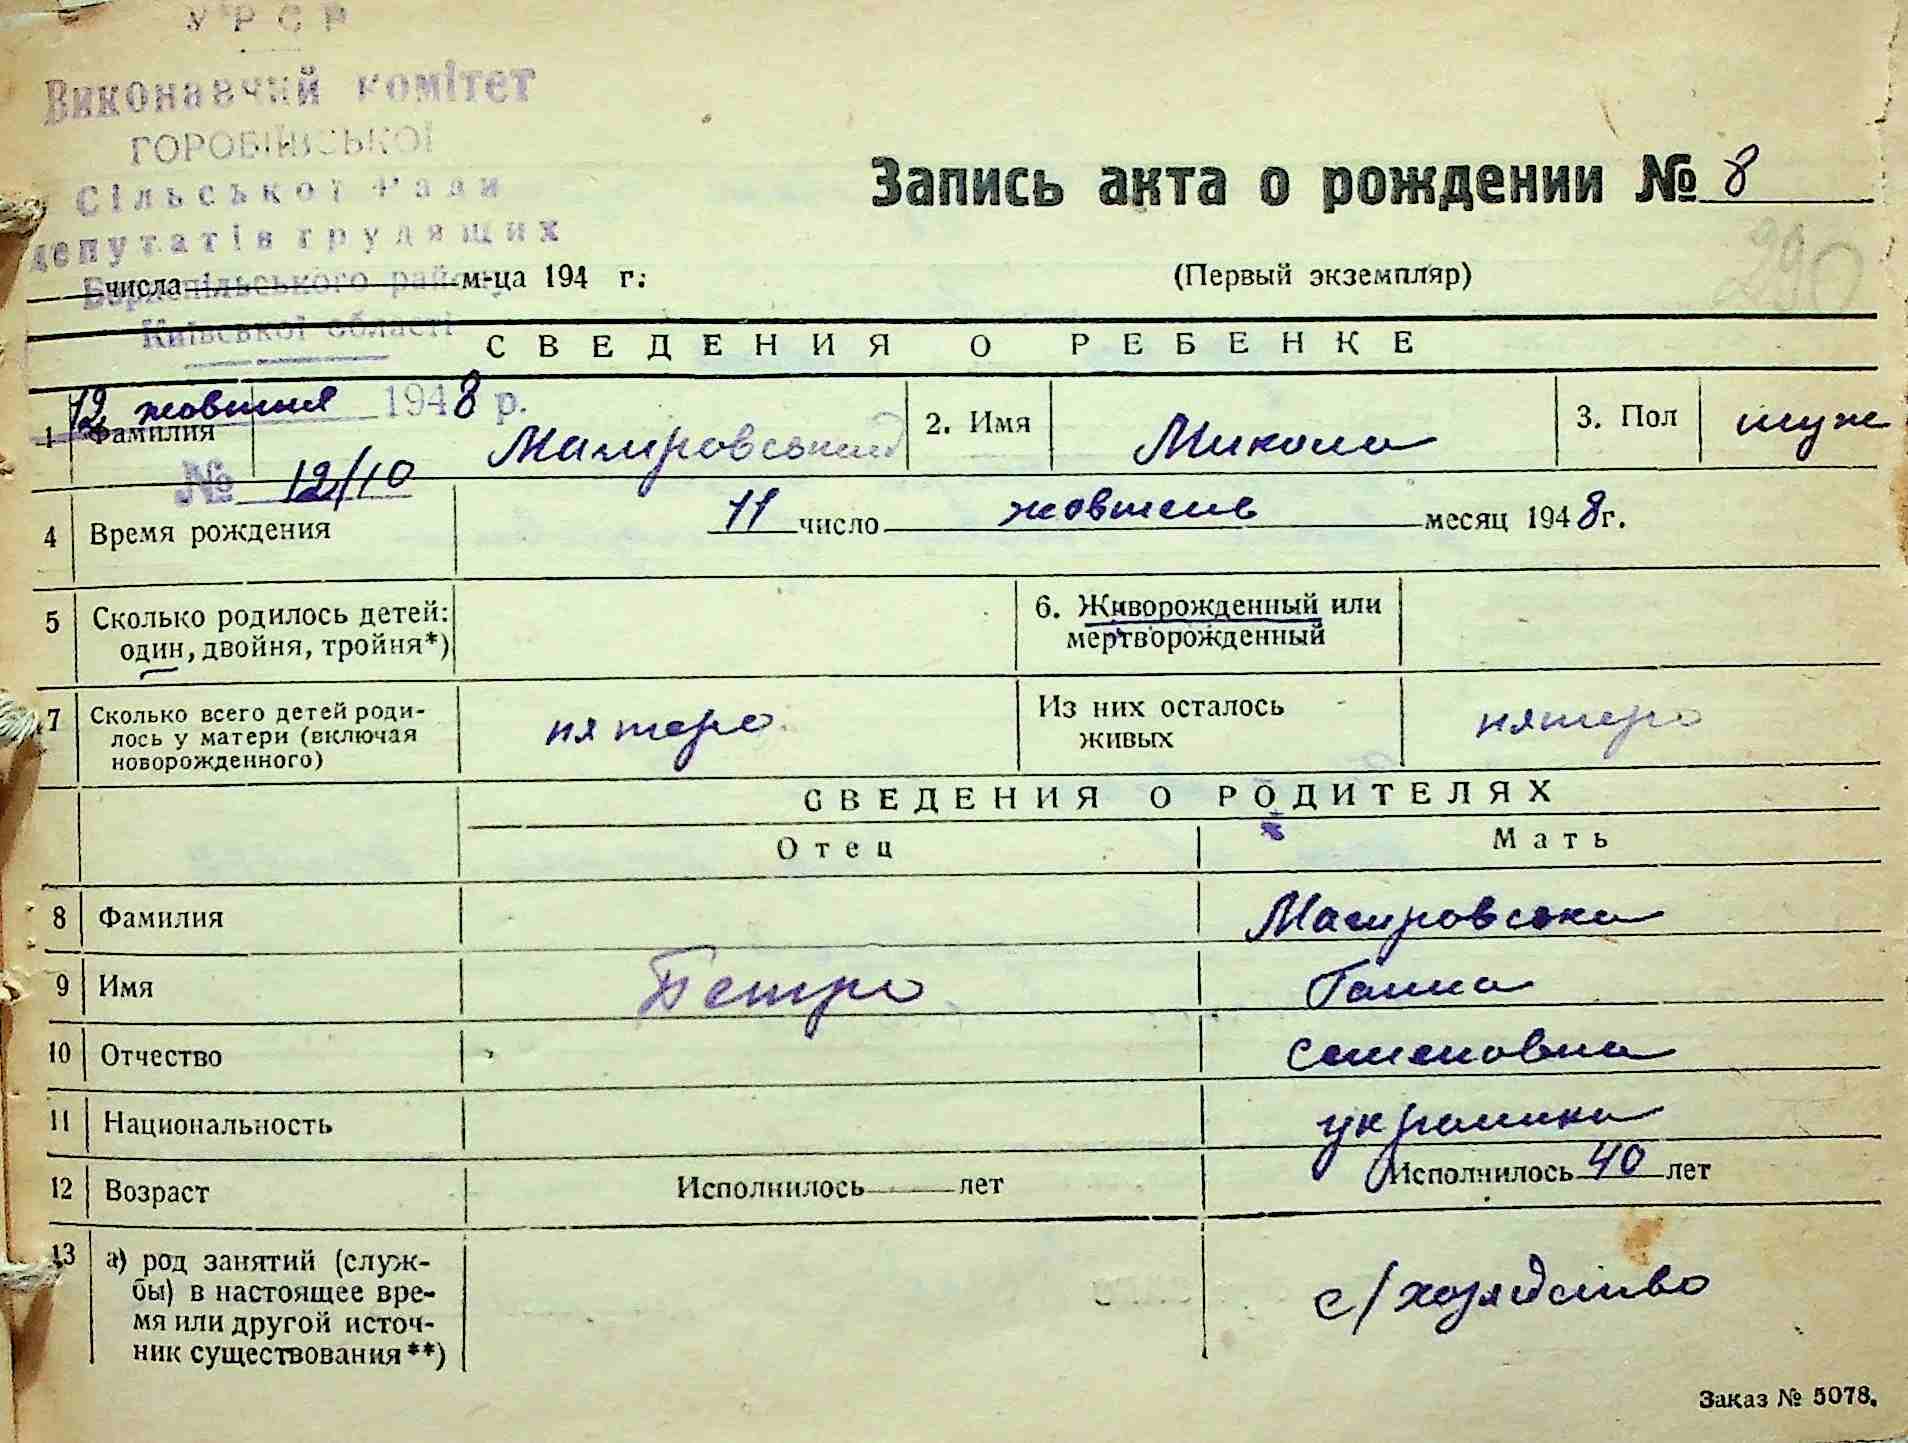 УРСР
Виконавчий комітет
ГОРОБІЇВСЬКОЇ
Сільської Ради
депутатів трудящих
Бориспільського району
Київської області
12 жовтня 1948 р.
№ 12/10
Запись акта о рождении № 8
числа м-ца 194 г.
(Первый экземпляр)
290
СВЕДЕНИЯ О РЕБЕНКЕ
1 Фамилия 2. Имя Микола 3. Пол муж
4 Время рождения 11 число жовтень месяц 1948 г.
5 Сколько родилось детей: 6. Живорожденный или
один, двойня, тройня*) мертворожденный
7 Сколько всего детей роди- пятеро Из них осталось пятеро
лось у матери (включая живых
новорожденного)
СВЕДЕНИЯ О РОДИТЕЛЯХ
Отец Мать
8 Фамилия
9 Имя Петро Ганна
10 Отчество Семеновна
11 Национальность украинка
12 Возраст Исполнилось лет Исполнилось 40 лет
13 а) род занятий (служ- с/хозяйство
бы) в настоящее вре-
мя или другой источ-
ник существования**)
Заказ № 5078.